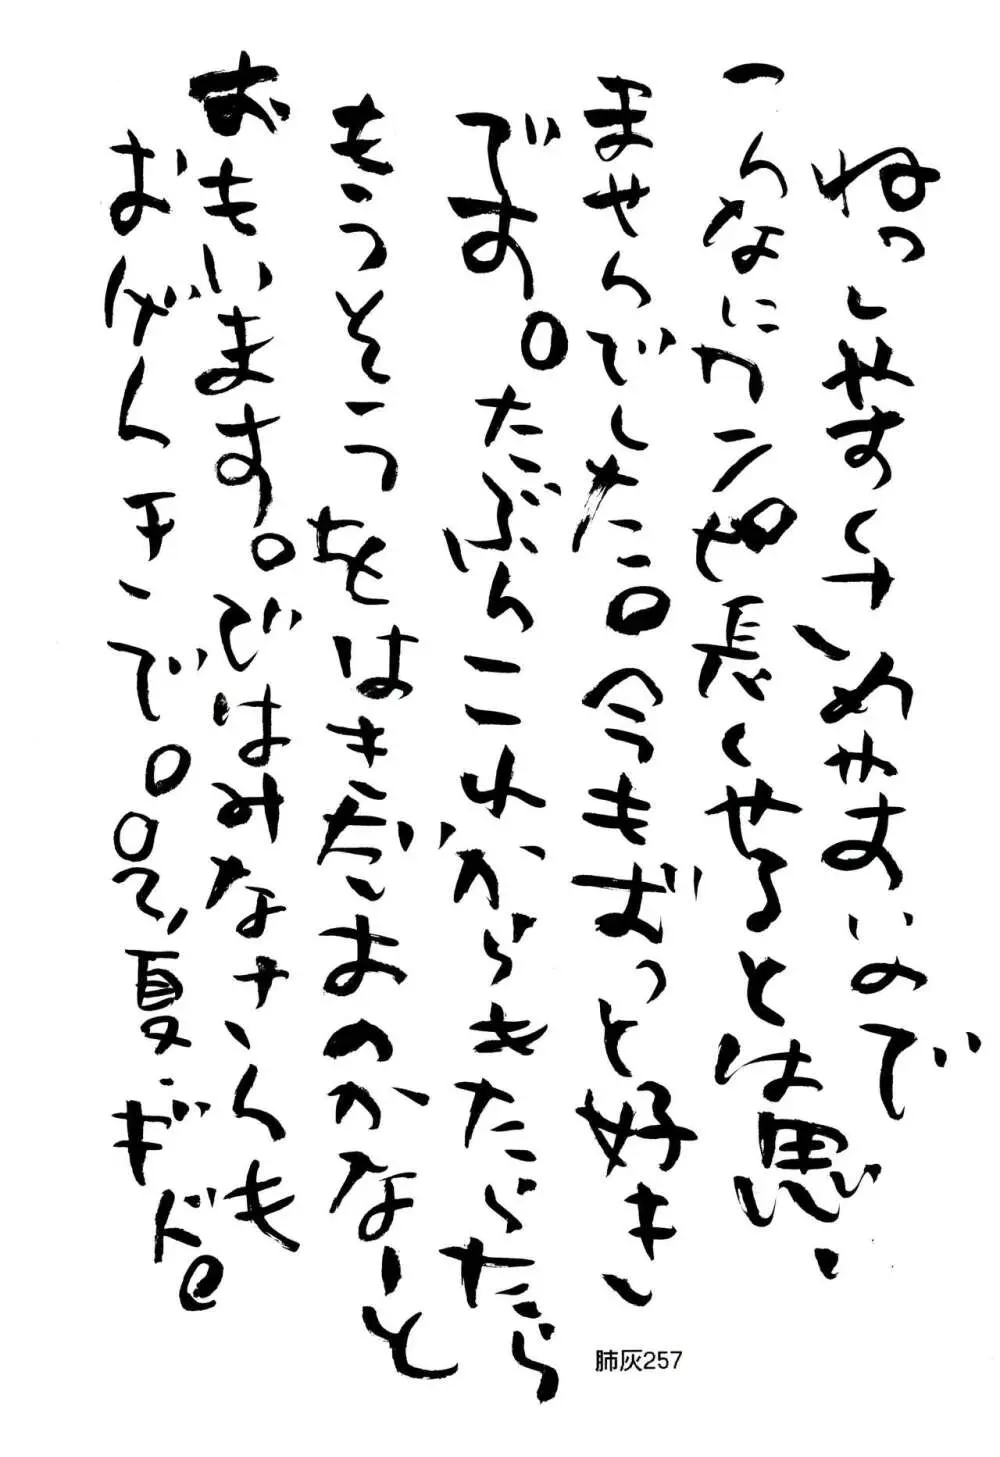 ねっしやすくさめやすいので
こんなにワンピ長くやるとは思い
ませんでした。今もずっと好き
です。たぶんこれからもたらたら
もうそうをはきだすのかなーと
おもいます。ではみなさんも
おげんきで。夏・ギド。
肺灰257